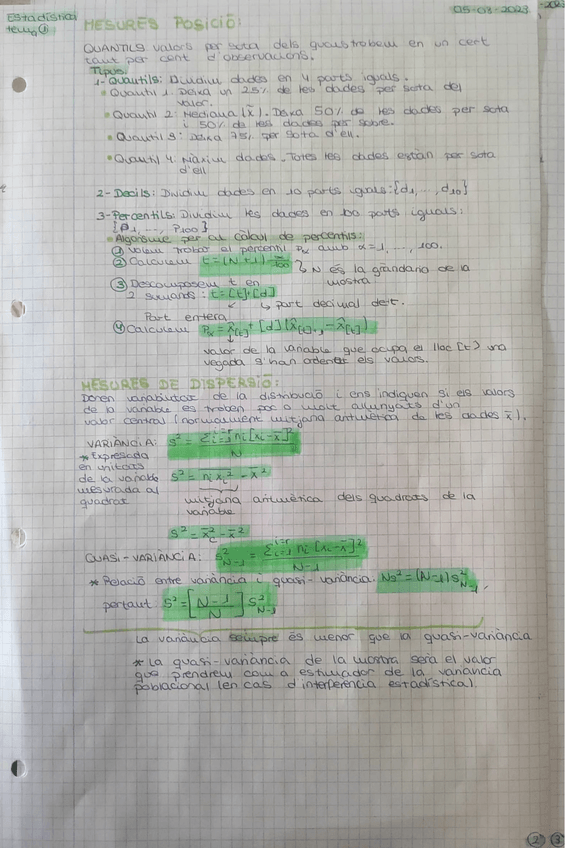 Estadística
tema ①
05-03-2023
MESURES POSICIÓ:
QUANTILS valors per sota dels quals trobem en un cert
tant per cent d'observacions.
Tipus:
1-Quantils: Dividim dades en 4 parts iguals.
• Quantil 1: Deixa un 25% de les dades per sota del
valor.
• Quantil 2: Mediana (x̃). Deixa 50% de les dades per sota
i 50% de les dades per sobre.
• Quantil 3: Deixa 75% per sota d'ell.
• Quantil 4: Màxim dades. Totes les dades estàn per sota
d'ell
2-Decils: Dividim dades en 10 parts iguals: {d1,..., d10}
3-Percentils: Dividim les dades en 100 parts iguals:
{P1,..., P100}
• Algorisme per al càlcul de percentils:
① Volem trobar el percentil Pα amb α=1,..., 100.
② Calculem t=(N+1) α/100 N és la grandària de la
mostra.
③ Descomposem t en
2 sumands: t=[t]+[d]
↳ part decimal de t.
Part entera
④ Calculem Pα = x̂[t] + [d] (x̂[t]+1 − x̂[t])
valor de la variable que ocupa el lloc [t] una
vegada s'han ordenat els valors.
MESURES DE DISPERSIÓ:
Donen variabilitat de la distribució i ens indiquen si els valors
de la variable es troben poc o molt allunyats d'un
valor central (normalment mitjana aritmètica de les dades x̄).
VARIÀNCIA: S² = Σ i=1 i=r ni [xi − x̄]² / N
* Expresada
en unitats
de la variable
mesurada al
quadrat
S² = ni xi² − x̄²
mitjana aritmètica dels quadrats de la
variable
QUASI-VARIÀNCIA: S²N−1 = Σ i=1 i=r ni [xi − x̄]² / N−1
* Relació entre variància i quasi-variància: NS² = (N−1) S²N−1,
pertant: S² = [N−1 / N] S²N−1
La variància sempre és menor que la quasi-variància
* La quasi-variància de la mostra serà el valor
que prendrem com a estimador de la variància
poblacional (en cas d'interferència estadística).
② ③